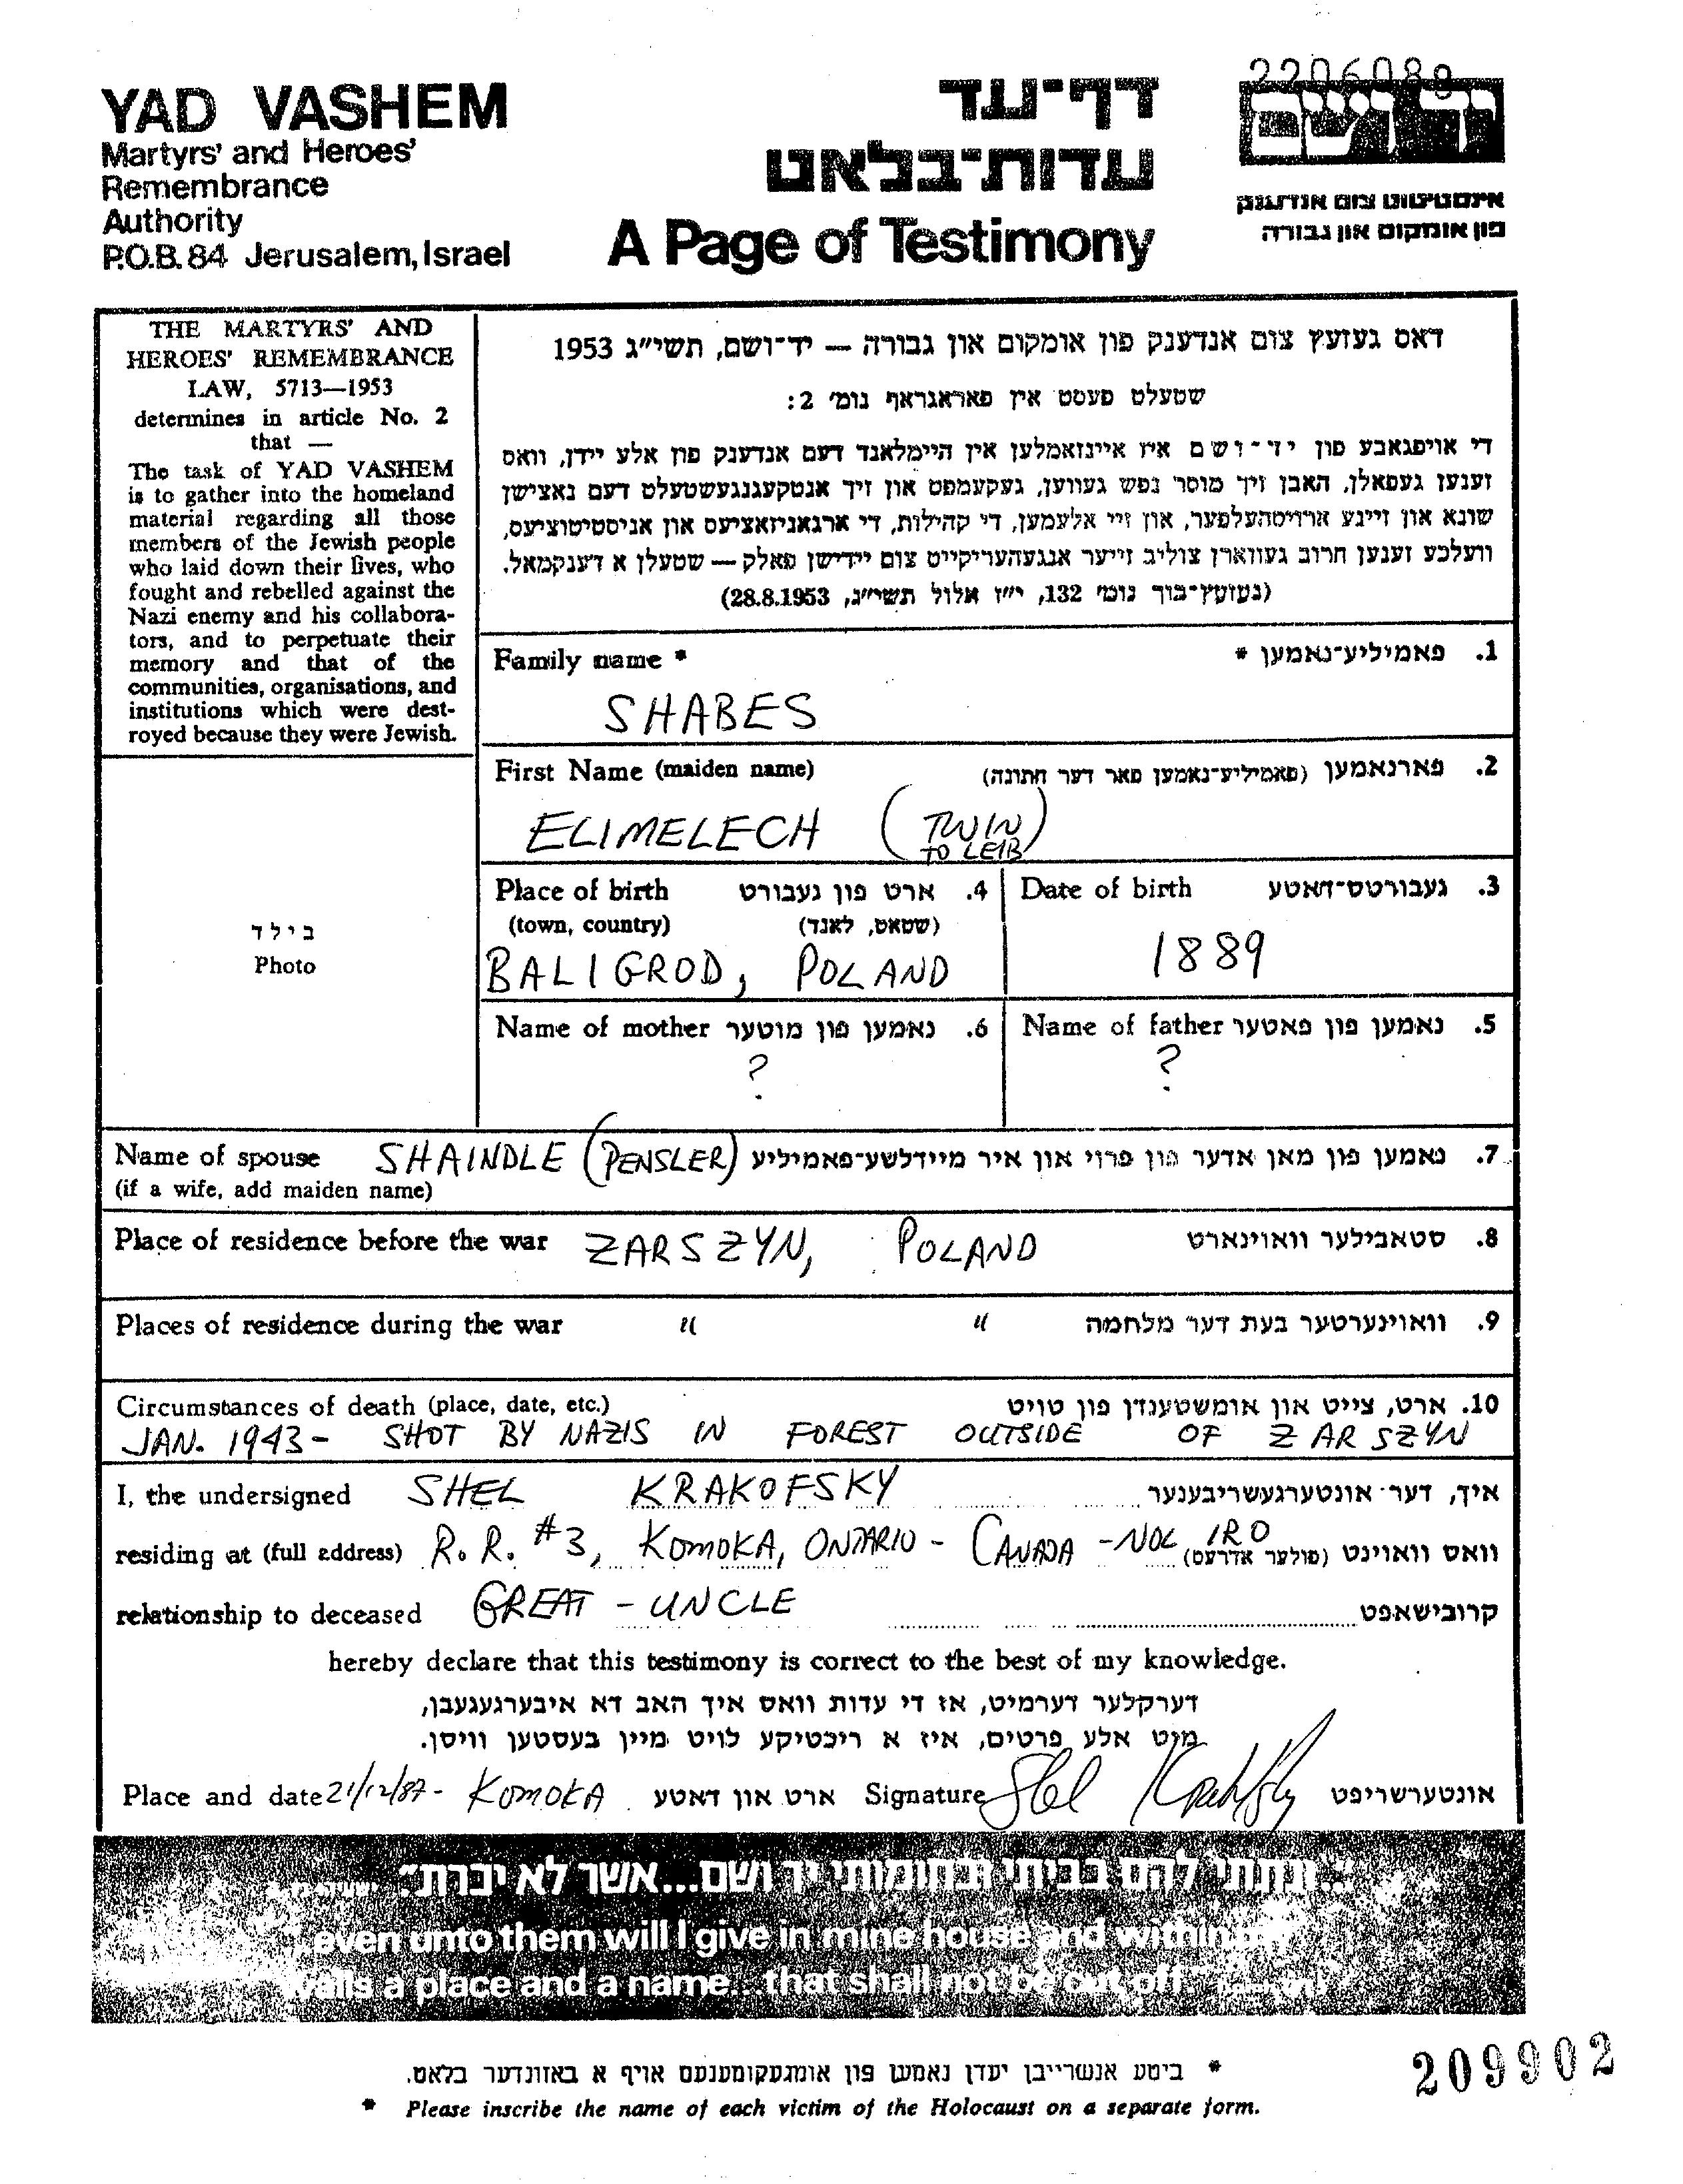 2206089
YAD VASHEM
Martyrs' and Heroes'
Remembrance
Authority
P.O.B. 84 Jerusalem, Israel
דף-עד
עדות-בלאט
A Page of Testimony
יד ושם
אינסטיטוט צום אנדענק
פון אומקום און גבורה
THE MARTYRS' AND
HEROES' REMEMBRANCE
LAW, 5713—1953
determines in article No. 2
that —
The task of YAD VASHEM
is to gather into the homeland
material regarding all those
members of the Jewish people
who laid down their lives, who
fought and rebelled against the
Nazi enemy and his collabora-
tors, and to perpetuate their
memory and that of the
communities, organisations, and
institutions which were dest-
royed because they were Jewish.
דאס געזעץ צום אנדענק פון אומקום און גבורה — יד-ושם, תשי"ג 1953
שטעלט פעסט אין פאראגראף נומ' 2:
די אויפגאבע פון יד-ושם איז איינזאמלען אין היימלאנד דעם אנדענק פון אלע יידן, וואס
זענען געפאלן, האבן זיך מוסר נפש געווען, געקעמפט און זיך אנטקעגנגעשטעלט דעם נאצישן
שונא און זיינע ארויסהעלפער, און זיי אלעמען, די קהילות, די ארגאניזאציעס און אניסטיטוציעס,
וועלכע זענען חרוב געווארן צוליב זייער אנגעהעריקייט צום יידישן פאלק — שטעלן א דענקמאל.
(געזעץ-בוך נומ' 132, י"ז אלול תשי"ג, 28.8.1953)
Family name * פאמיליע-נאמען * .1
SHABES
First Name (maiden name) פארנאמען (פאמיליע-נאמען פאר דער חתונה) .2
ELIMELECH (TWIN
TO LEIB)
Place of birth ארט פון געבורט .4
(town, country) (שטאט, לאנד)
BALIGROD, POLAND
Date of birth געבורטס-דאטע .3
1889
Name of mother נאמען פון מוטער .6
?
Name of father נאמען פון פאטער .5
?
בילד
Photo
Name of spouse SHAINDLE (PENSLER) נאמען פון מאן אדער פון פרוי און איר מיידלשע-פאמיליע .7
(if a wife, add maiden name)
Place of residence before the war ZARSZYN, POLAND סטאבילער וואוינארט .8
Places of residence during the war " " וואוינערטער בעת דער מלחמה .9
Circumstances of death (place, date, etc.) ארט, צייט און אומשטענדן פון טויט .10
JAN. 1943- SHOT BY NAZIS IN FOREST OUTSIDE OF ZARSZYN
I, the undersigned SHEL KRAKOFSKY איך, דער אונטערגעשריבענער
residing at (full address) R.R. #3, KOMOKA, ONTARIO - CANADA - NOL 1R0 וואס וואוינט (פולער אדרעס)
relationship to deceased GREAT - UNCLE קרובישאפט
hereby declare that this testimony is correct to the best of my knowledge.
דערקלער דערמיט, אז די עדות וואס איך האב דא איבערגעגעבן,
מיט אלע פרטים, איז א ריכטיקע לויט מיין בעסטען וויסן.
Place and date 21/12/87 - KOMOKA ארט און דאטע Signature Shel Krakofsky אונטערשריפט
"ונתתי להם בביתי ובחומותי יד ושם...אשר לא יכרת"
"...even unto them will I give in mine house and within my
walls a place and a name...that shall not be cut off"
* ביטע אנשרייבן יעדן נאמען פון אומגעקומענעם אויף א באזונדער בלאט.
* Please inscribe the name of each victim of the Holocaust on a separate form.
209902